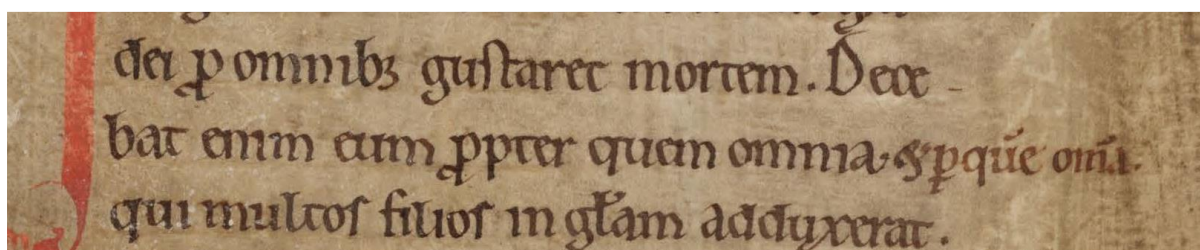 dei ꝓ omnibꝫ guſtaret mortem. Dece-
bat enim eum ꝓpter quem omnia, & ꝑ quē om̄ia.
qui multoſ filioſ in gl̄am adduxerat.